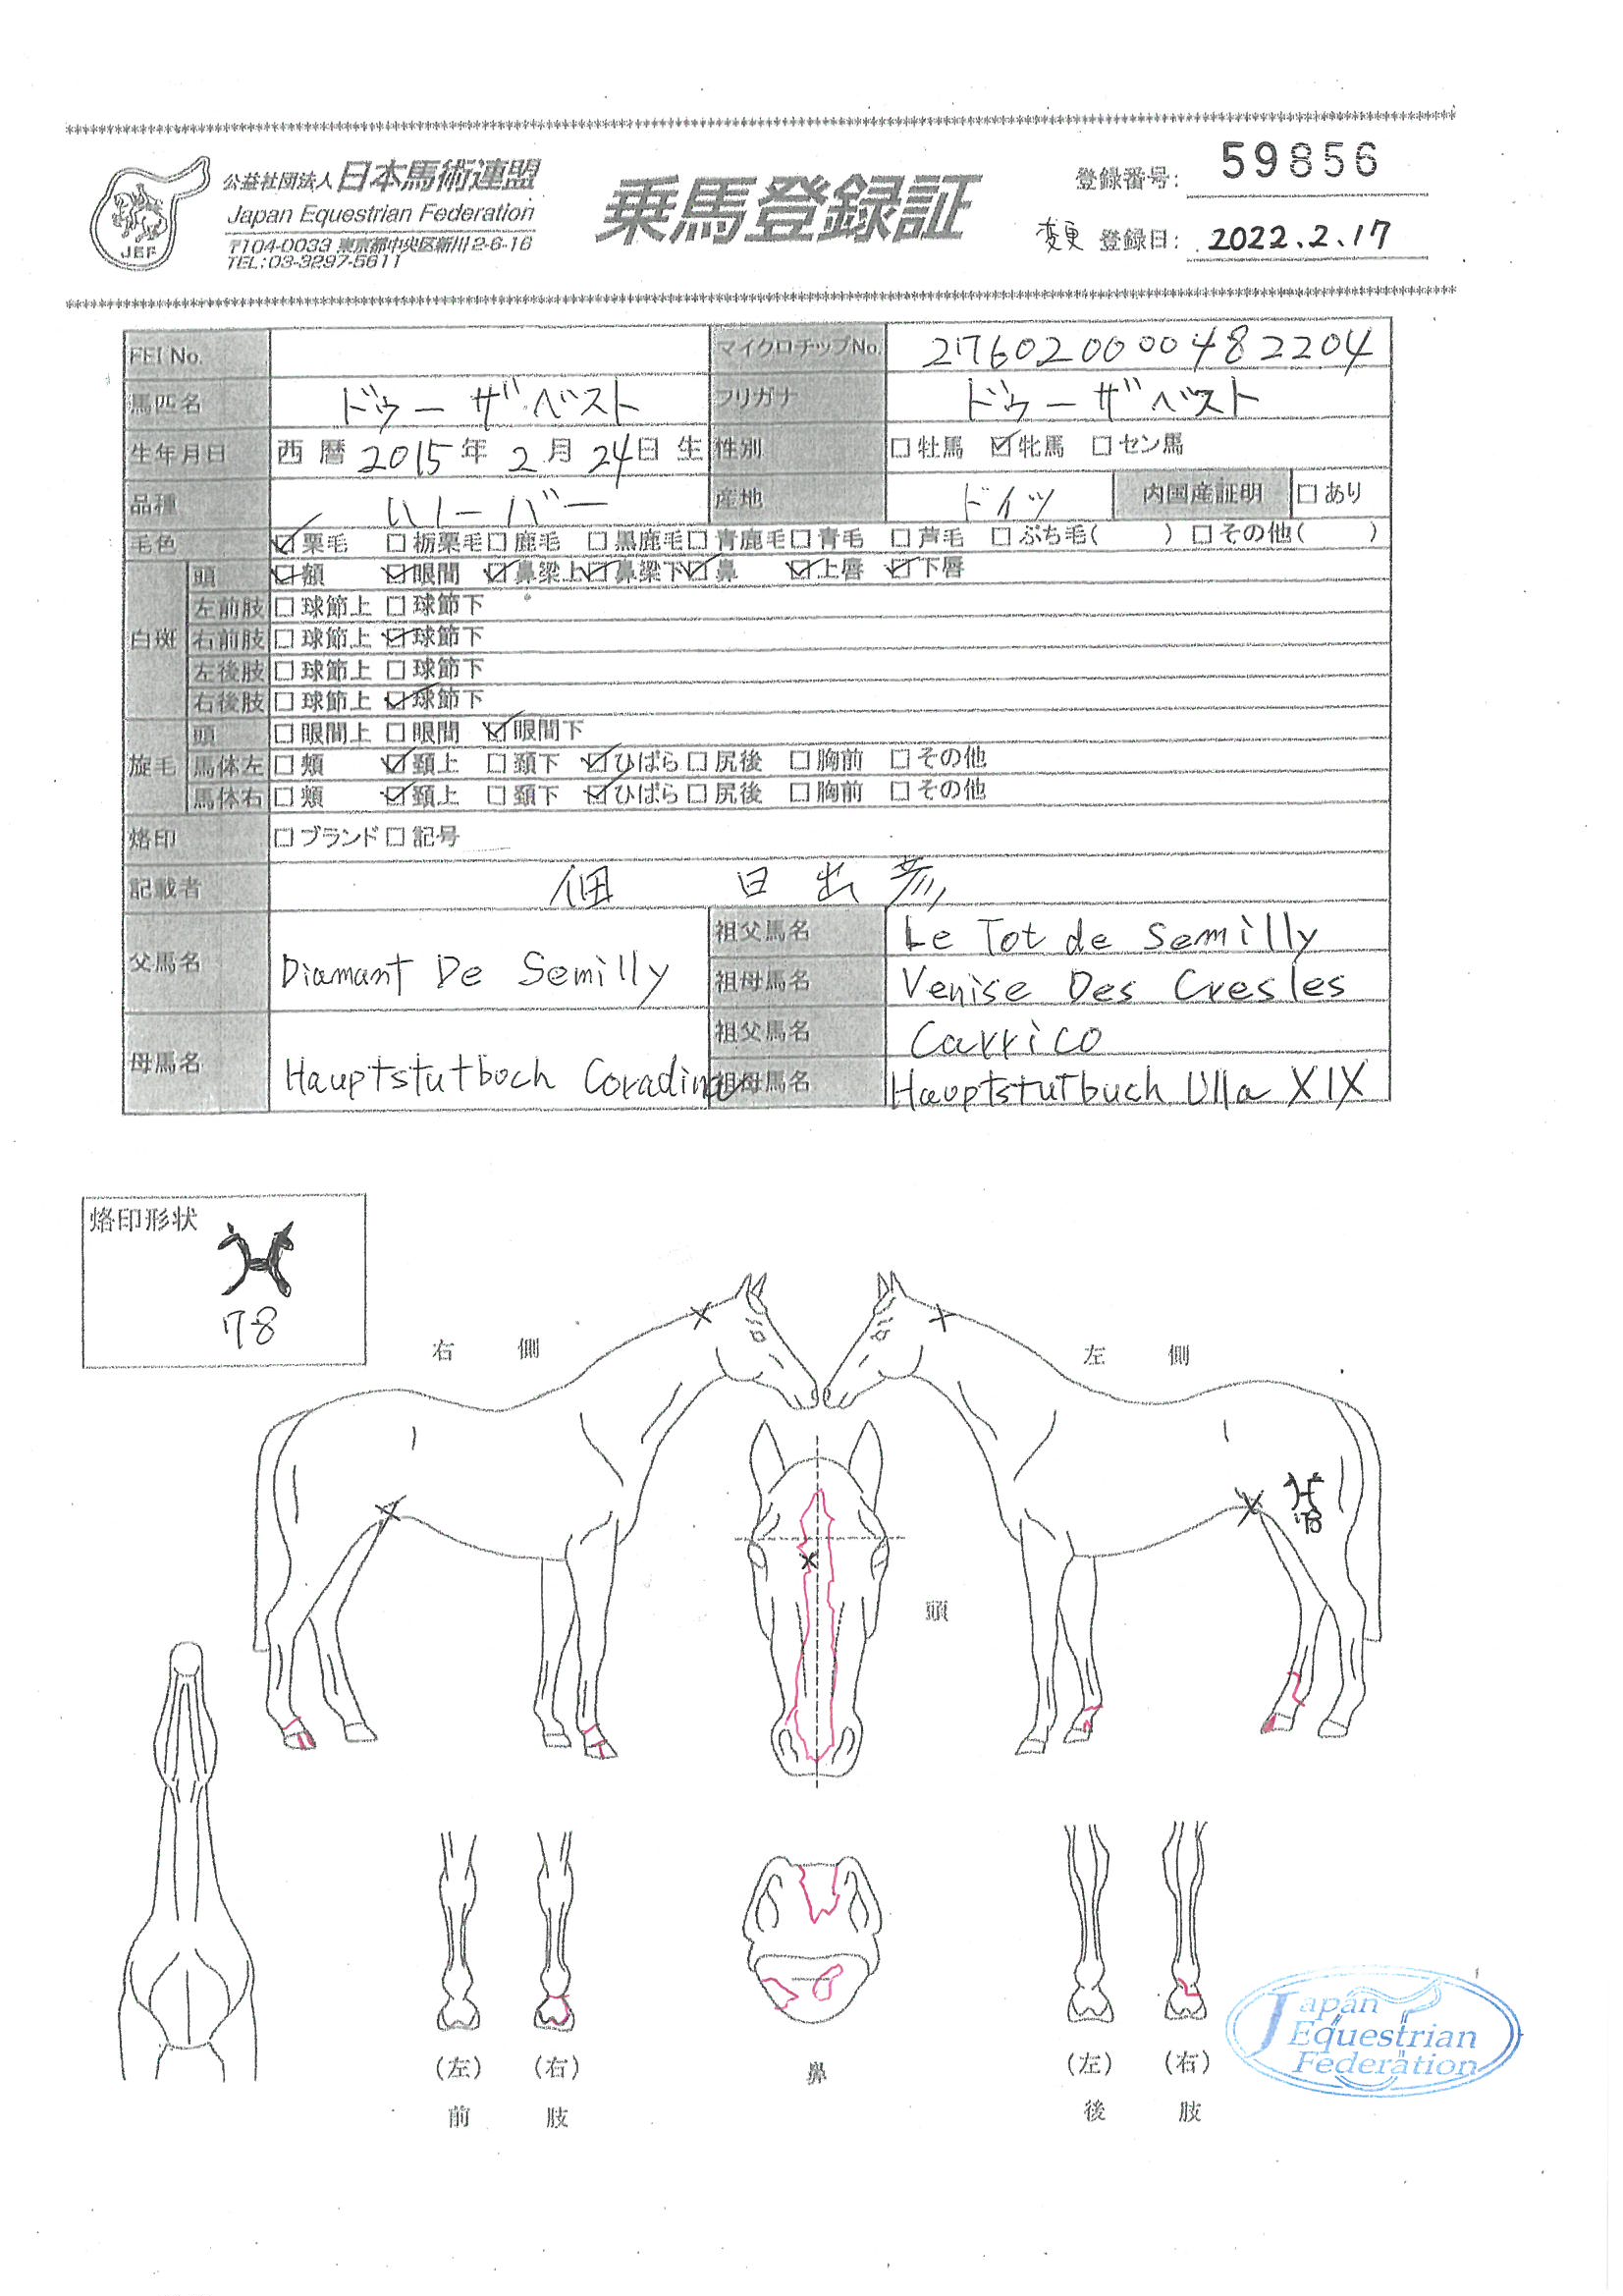 公益社団法人 日本馬術連盟
Japan Equestrian Federation
〒104-0033 東京都中央区新川2-6-16
TEL:03-3297-5611
JEF
乗馬登録証
登録番号: 59856
変更 登録日: 2022.2.17
FEI No. マイクロチップNo. 276020000482204
馬匹名 ドゥーザベスト フリガナ ドゥーザベスト
生年月日 西暦 2015年 2月 24日 生 性別 □牡馬 ☑牝馬 □セン馬
品種 ハノーバー 産地 ドイツ 内国産証明 □あり
毛色 ☑栗毛 □栃栗毛 □鹿毛 □黒鹿毛 □青鹿毛 □青毛 □芦毛 □ぶち毛( ) □その他( )
白斑 頭 ☑額 ☑眼間 ☑鼻梁上 ☑鼻梁下 ☑鼻 ☑上唇 ☑下唇
左前肢 □球節上 □球節下
右前肢 □球節上 ☑球節下
左後肢 □球節上 □球節下
右後肢 □球節上 ☑球節下
旋毛 頭 □眼間上 □眼間 ☑眼間下
馬体左 □頬 ☑頚上 □頚下 ☑ひばら □尻後 □胸前 □その他
馬体右 □頬 ☑頚上 □頚下 ☑ひばら □尻後 □胸前 □その他
烙印 □ブランド □記号
記載者 佃 日出彦
父馬名 Diamant De Semilly
祖父馬名 Le Tot de Semilly
祖母馬名 Venise Des Cresles
母馬名 Hauptstutboch Coradina
祖父馬名 Carrico
祖母馬名 Hauptstutbuch Ulla XIX
烙印形状
78
右 側
左 側
78
頭
(左) (右)
前 肢
鼻
(左) (右)
後 肢
Japan
Equestrian
Federation